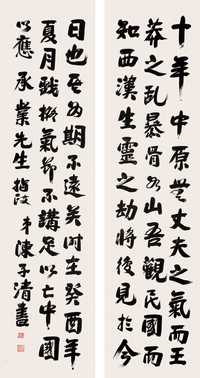 十年中原無丈夫之氣而王
莽之亂暴骨如山吾觀民國而
知西漢生靈之劫將復見於今
日也至期不遠矣時在癸酉年
夏月戲擬氣節不講足以亡中國
以應
承業先生指政 弟陳子清書